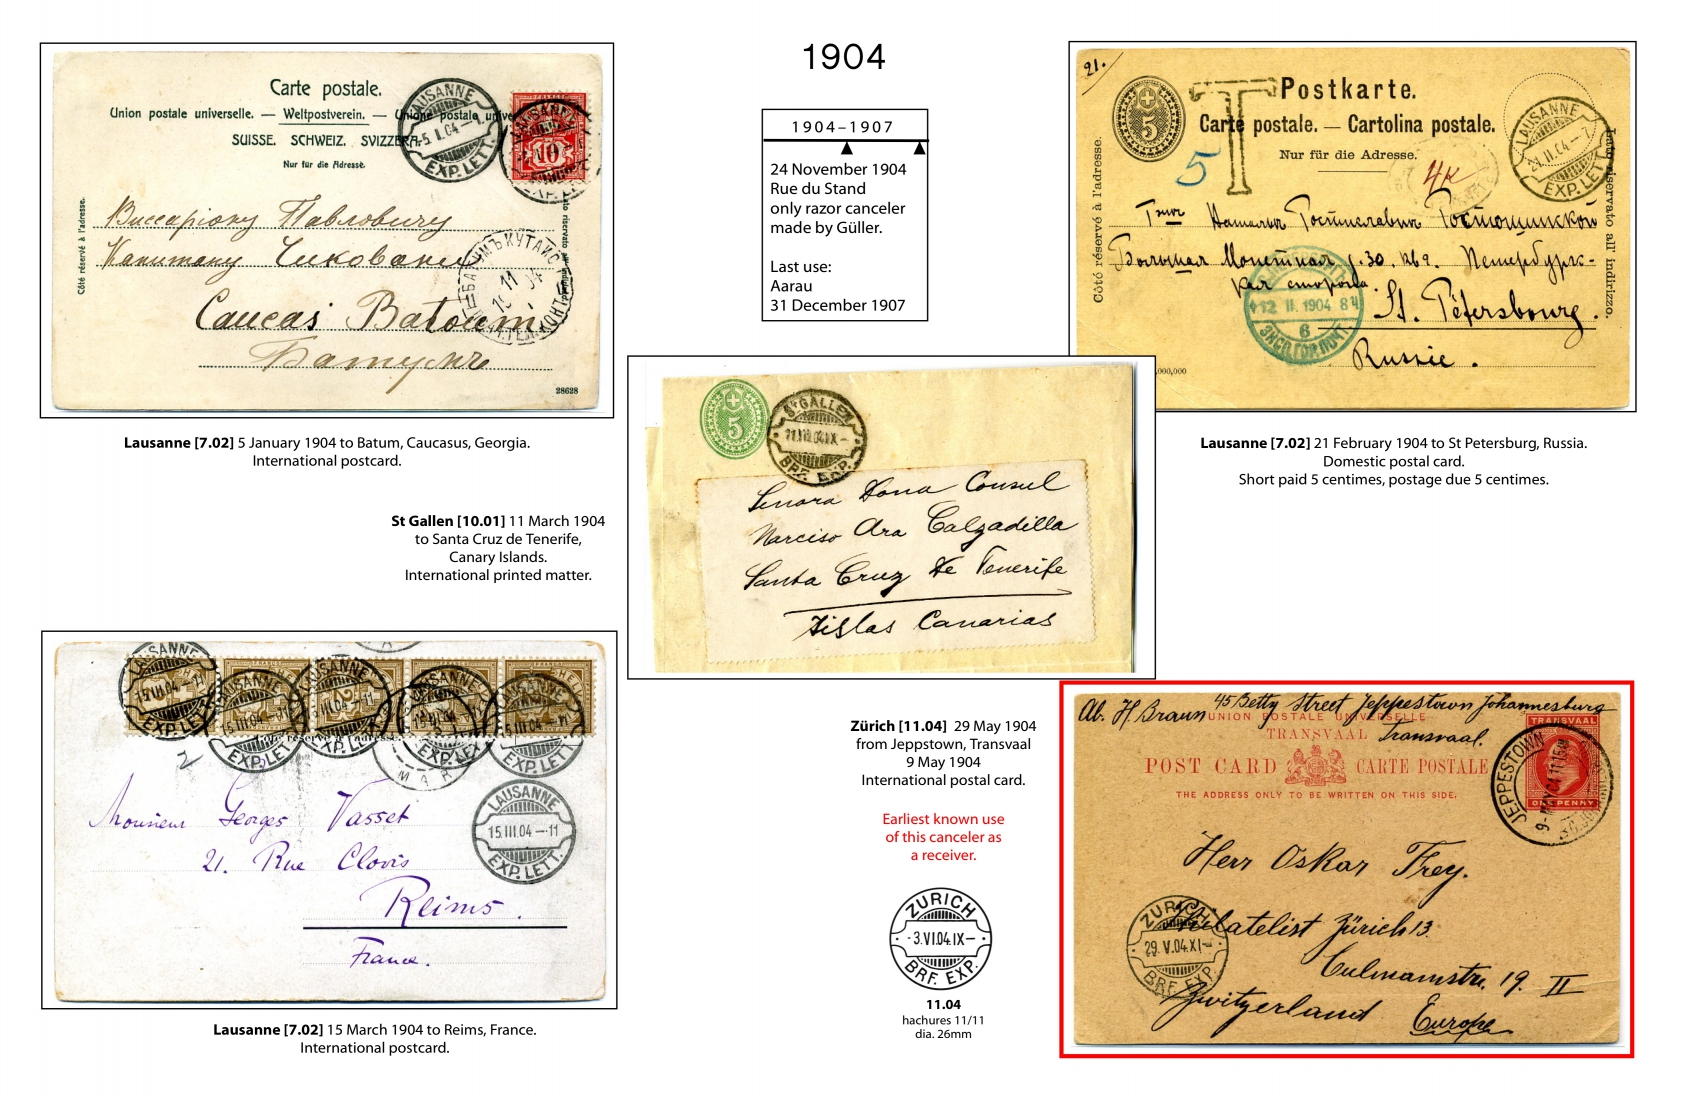 1904
1904–1907
24 November 1904
Rue du Stand
only razor canceler
made by Güller.
Last use:
Aarau
31 December 1907
Carte postale.
Union postale universelle. — Weltpostverein. — Unione postale unive
SUISSE. SCHWEIZ. SVIZZERA.
Nur für die Adresse.
Côté réservé à l'adresse.
LAUSANNE
-5.I.04.-
EXP. LETT.
10
Виссаріону Павловичу
Капитану Чиковани
Caucas Batoum
Батумъ
28628
Lausanne [7.02] 5 January 1904 to Batum, Caucasus, Georgia.
International postcard.
21.
Postkarte.
Carte postale. — Cartolina postale.
Nur für die Adresse.
Côté réservé à l'adresse.
Lato riservato all' indirizzo.
5
T
5
4к
LAUSANNE
21.II.04.-7
EXP. LETT.
Большая Монетная д. 30. кв 9. Петербург-
кая сторона.
12 II. 1904 8
6
St. Pétersbourg.
Russie.
.000,000
Lausanne [7.02] 21 February 1904 to St Petersburg, Russia.
Domestic postal card.
Short paid 5 centimes, postage due 5 centimes.
St Gallen [10.01] 11 March 1904
to Santa Cruz de Tenerife,
Canary Islands.
International printed matter.
5
ST GALLEN
11.III.04.IX-
BRF. EXP.
Senora Dona Consul
Narciso Ara Calzadilla
Santa Cruz de Tenerife
Islas Canarias
LAUSANNE
15.III.04.-11
EXP. LETT.
Monsieur Georges Vasset
21. Rue Clovis
Reims.
France.
LAUSANNE
15.III.04.-11
EXP. LETT.
Lausanne [7.02] 15 March 1904 to Reims, France.
International postcard.
Zürich [11.04] 29 May 1904
from Jeppstown, Transvaal
9 May 1904
International postal card.
Earliest known use
of this canceler as
a receiver.
ZÜRICH
-3.VI.04.IX-
BRF. EXP.
11.04
hachures 11/11
dia. 26mm
Ab. H Braun 45 Betty Street Jeppestown Johannesburg
Transvaal.
UNION POSTALE UNIVERSELLE
TRANSVAAL
POST CARD CARTE POSTALE
THE ADDRESS ONLY TO BE WRITTEN ON THIS SIDE.
TRANSVAAL
ONE PENNY
JEPPESTOWN
9-MAY 04
Herr Oskar Frey.
Philatelist Zürich 13
Culmannstr. 19. II
Switzerland Europe
ZÜRICH
29.V.04.XI-
BRF. EXP.